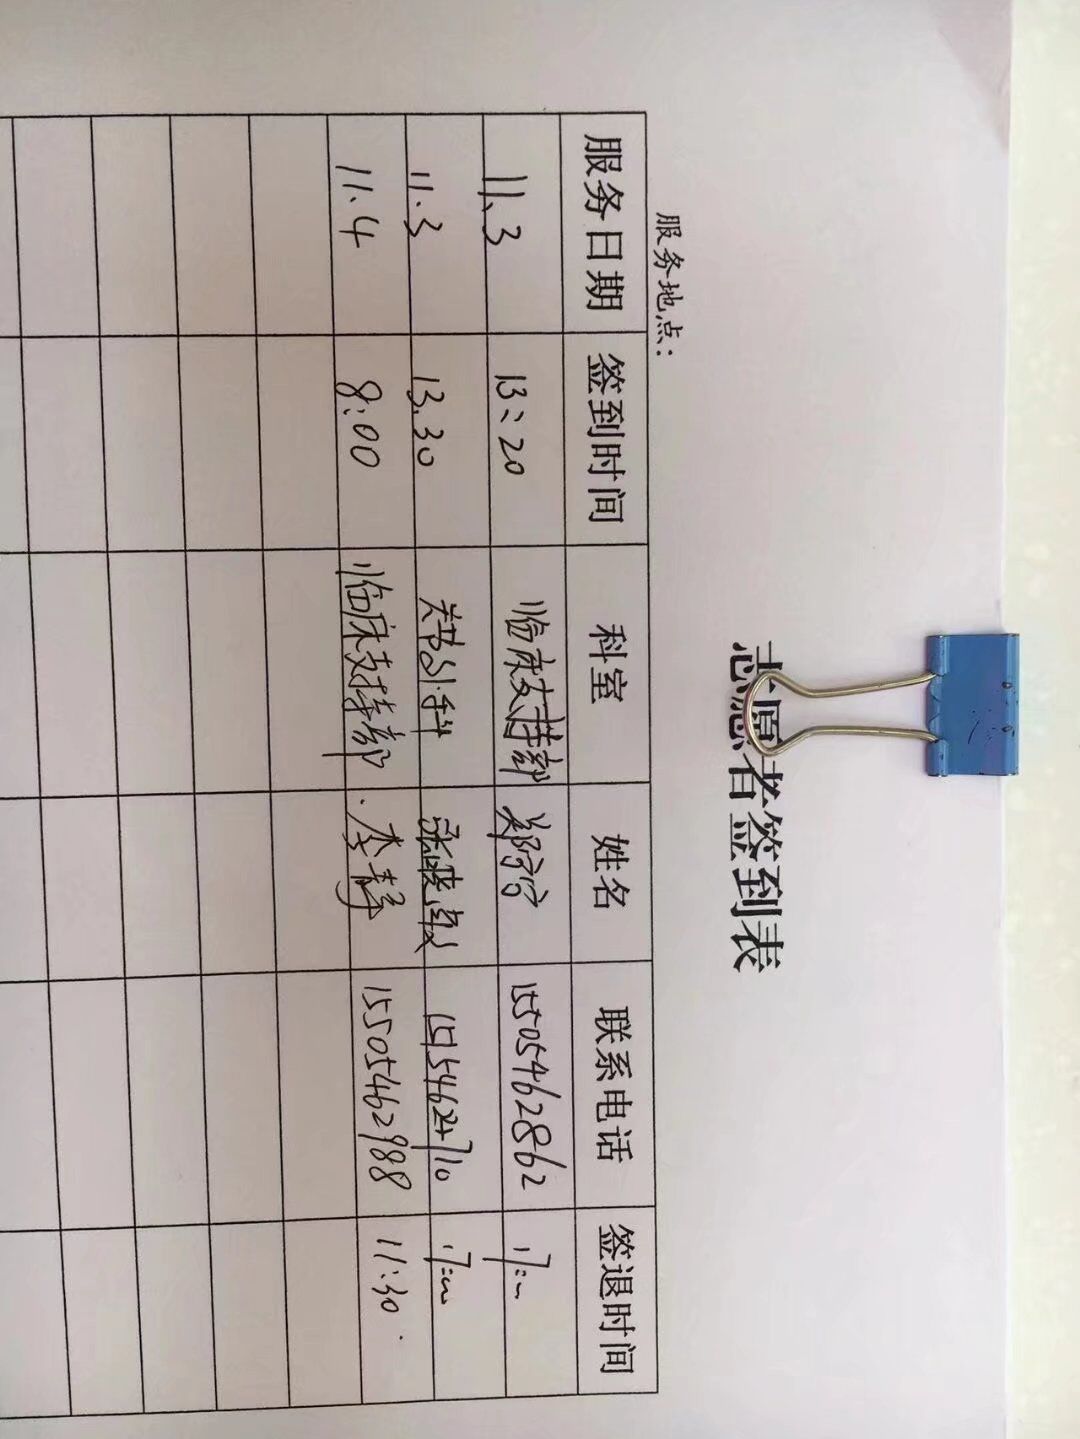 志愿者签到表
服务地点：
服务日期 签到时间 科室 姓名 联系电话 签退时间
11.3 13:20 临床支持部 15505462862 17:00
11.3 13.30 17:00
11.4 8:00 临床支持部 李静 15505462988 11:30